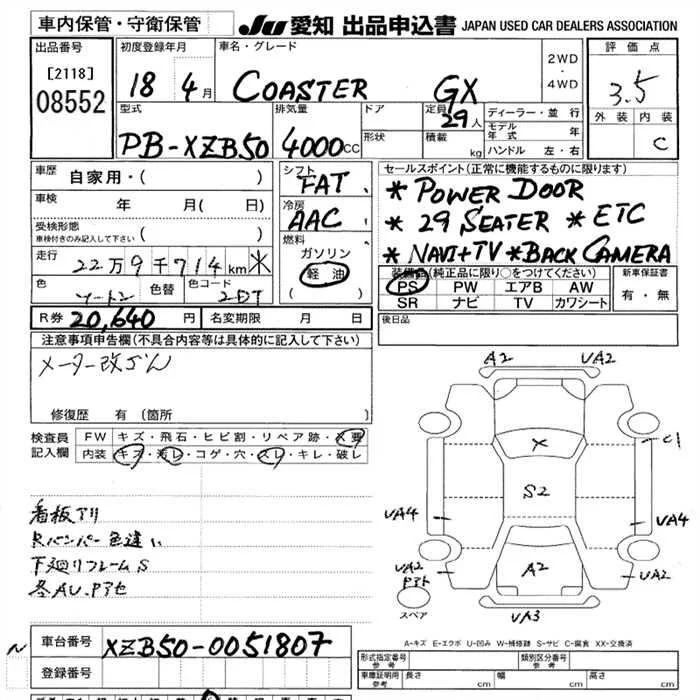 車内保管・守衛保管
JU 愛知 出品申込書 JAPAN USED CAR DEALERS ASSOCIATION
出品番号
[2118]
08552
初度登録年月
18 4月
車名・グレード
COASTER GX
2WD
・
4WD
評価点
3.5
外装 内装
C
型式
PB-XZB50
排気量
4000cc
ドア
形状
定員
29人
積載
kg
ディーラー・並行
モデル年式 年
ハンドル 左・右
車歴
自家用・( )
車検
年 月( 日)
受検形態
車検付きのみ記入して下さい ( )
走行
22万9千714km ※
色
ツートン
色替
色コード
2DT
シフト
FAT
冷房
AAC
燃料
ガソリン
軽油
( )
セールスポイント(正常に機能するものに限ります)
* POWER DOOR
* 29 SEATER * ETC
* NAVI+TV * BACK CAMERA
装備品(純正品に限り○をつけてください)
PS PW エアB AW
SR ナビ TV カワシート
新車保証書
有・無
R券 20,640 円
名変期限 月 日
後日品
注意事項申告欄(不具合内容等は具体的に記入して下さい)
メーター改ざん
修復歴 有 (箇所 )
検査員
記入欄
FW キズ・飛石・ヒビ割・リペア跡・X要
内装 キズ・汚レ・コゲ・穴・スレ・キレ・破レ
看板アリ
Rバンパー色違い
下廻りフレームS
A2 UA2
X
C1
S2
UA4 UA4
UA2
A2
UA2
UA3
スペア
A-キズ E-エクボ U-凹み W-補修跡 S-サビ C-腐食 XX-交換済
車台番号
XZB50-0051807
登録番号
形式指定番号
参考
類別区分番号
参考
車庫証明用
参考
長さ cm
幅 cm
高さ cm